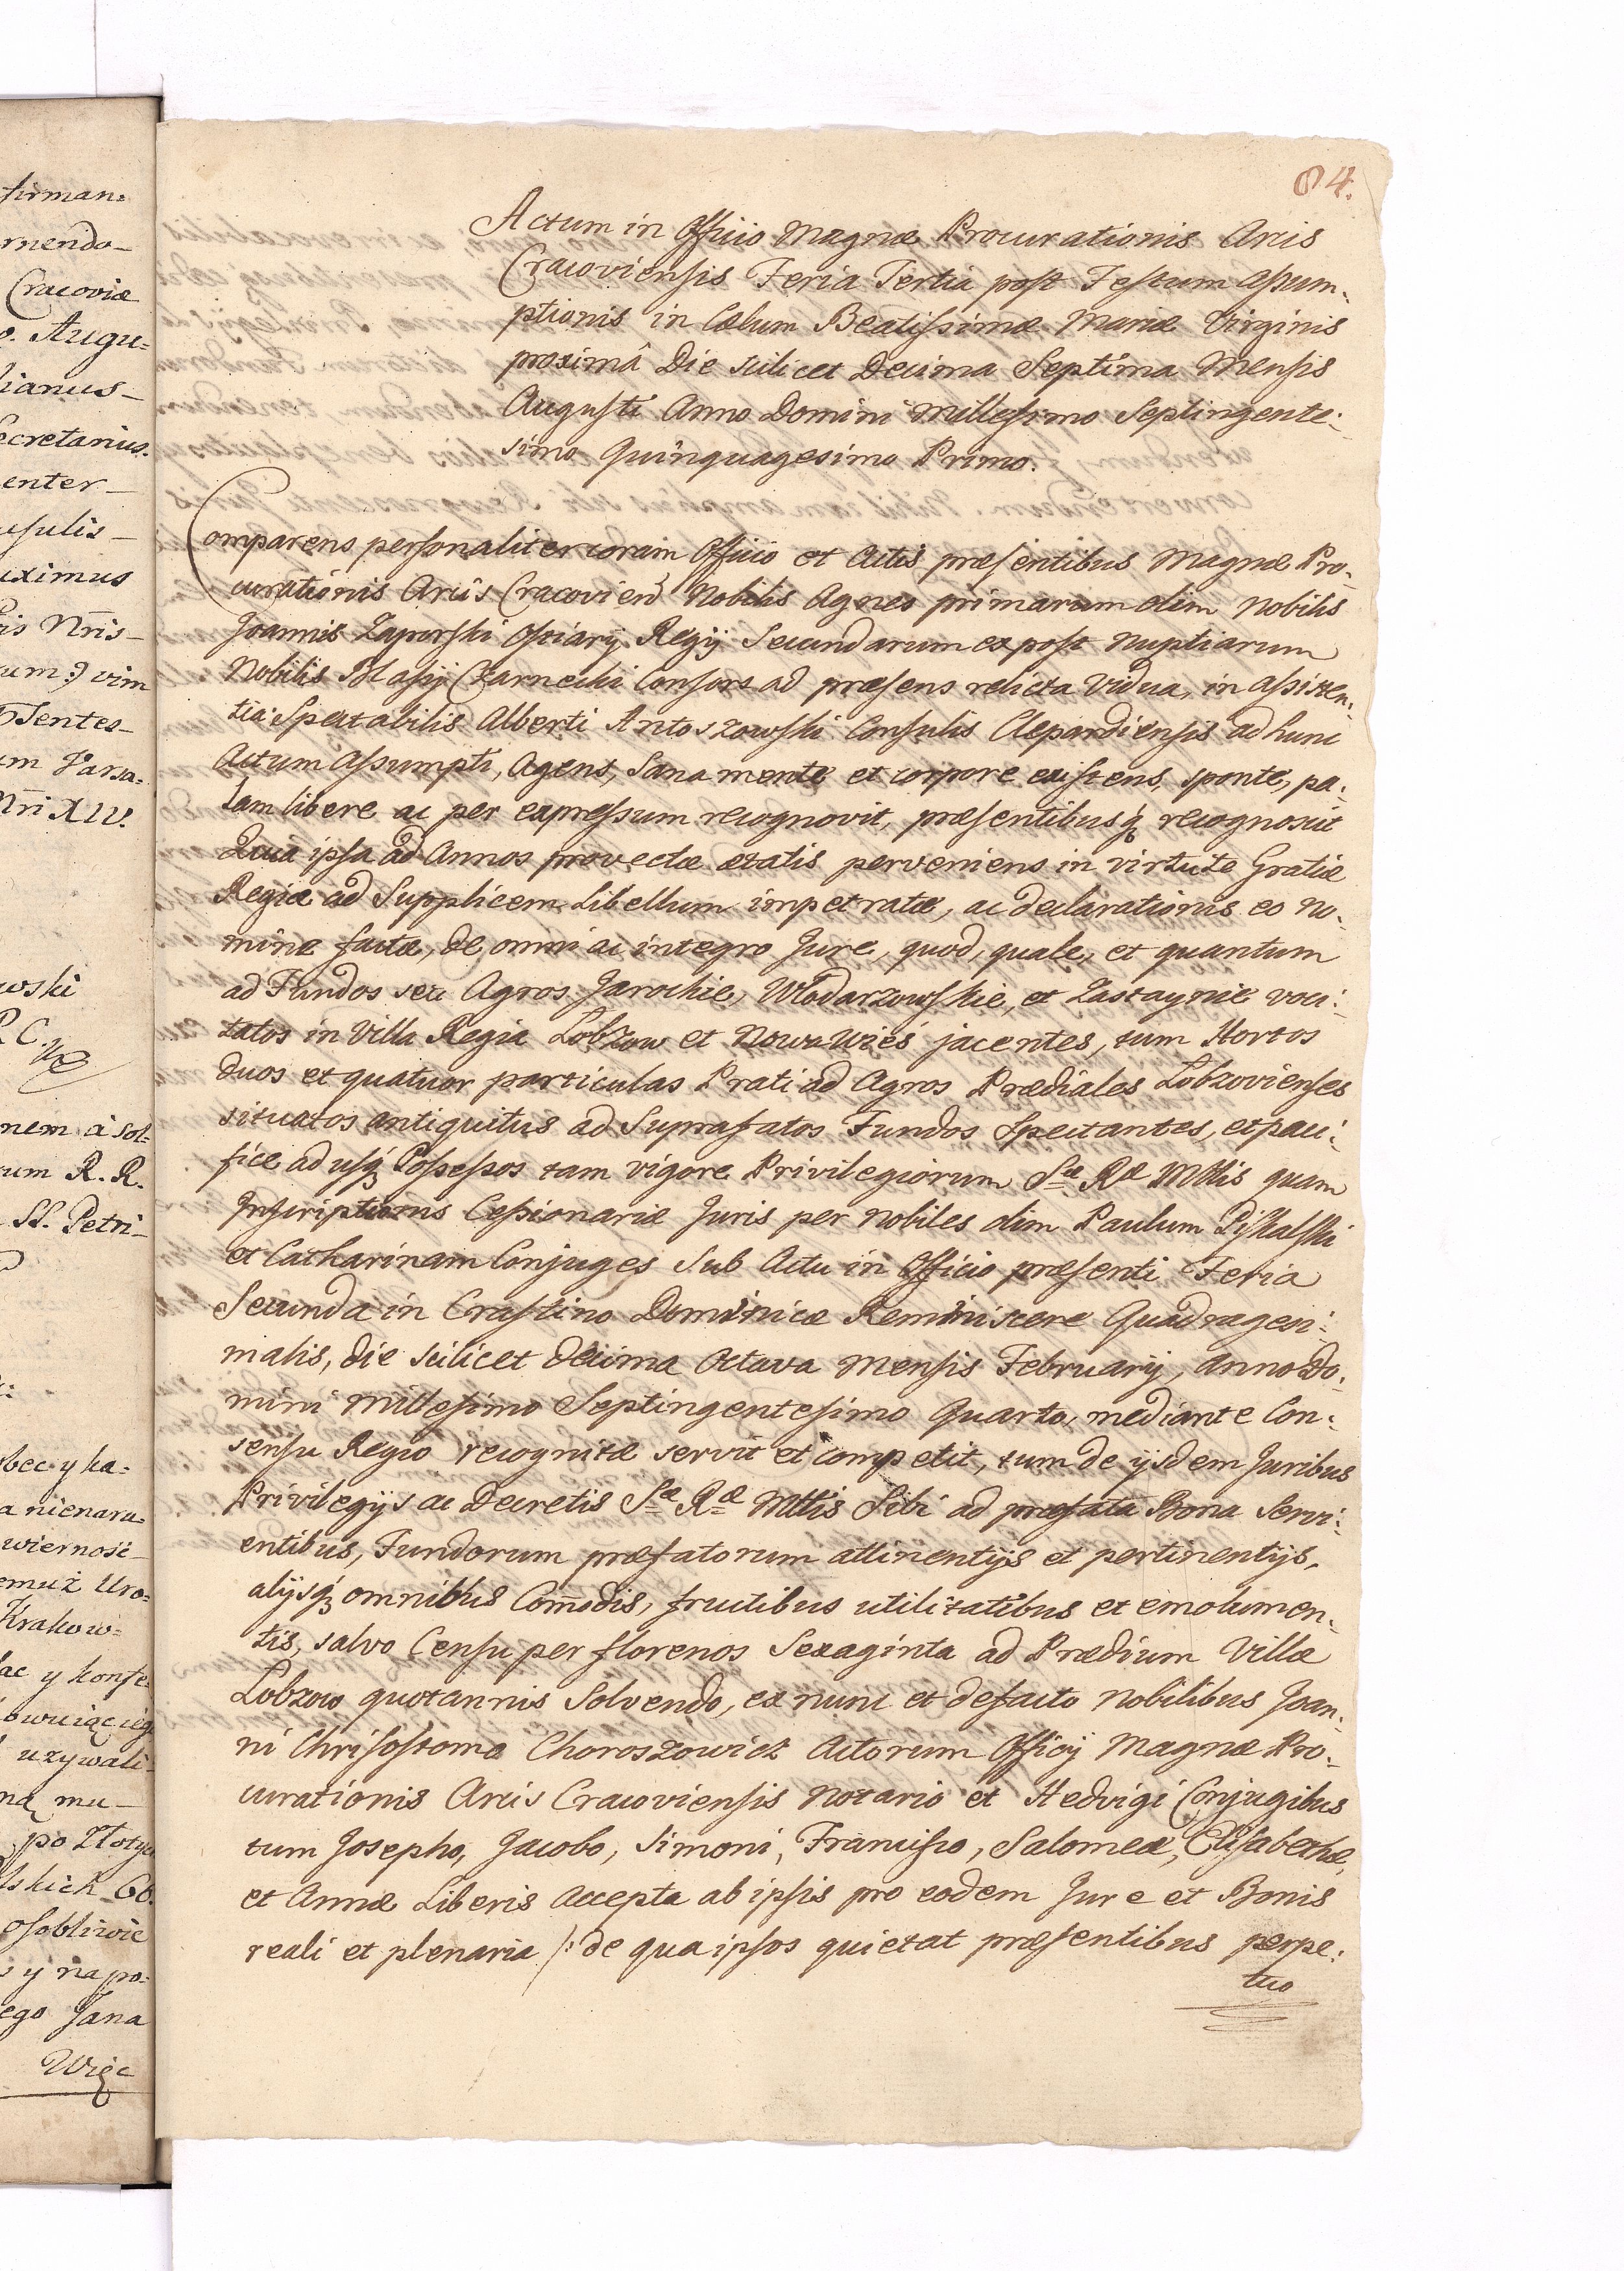 firman:
mendo_
Cracoviæ
o. Augu=
lianus_
ecretarius.
enter_
usulis_
uximus
ris Nrĩs_
rum:) vim
Tarsa:
Nrĩ XIV.
wski
nem a sol:
rum R. R.
SS. Petri_
obec y ka:
a nienaru=
wiernosć_
emuż Uro:
Krakow=
używali
ną mu_
po Złotyc
lskich 60.
osobliwie
s y na po:
ego Jana
Więc
84.
Actum in Officio Magnæ Procurationis Arcis
Cracoviensis Feria Tertia post Festum Assum-
ptionis in Cælum Beatissimæ Mariæ Virginis
proximâ Die scilicet Decima Septima Mensis
Augusti Anno Domini Millesimo Septingente-
simo Quinquagesimo Primo.
Comparens personaliter coram Officio et Actis præsentibus Magnæ Pro-
curationis Arcis Cracovien Nobilis Agnes primarum olim Nobilis
Joannis Zapurski Ostiarij Regij Secundarum ex post Nuptiarum
Nobilis Blasij Czarnecki Consors ad præsens relicta Vidua, in Assisten-
tia Spectabilis Alberti Antoszowski Consulis Clepardiensis ad hunc
Actum Assumpti, Agens, Sana mente et corpore existens, sponte, pa-
lam libere ac per expressum recognovit, præsentibusq recognoscit
Quia ipsa ad Annos provectæ ætatis perveniens in virtute Gratiæ
Regiæ ad Supplicem Libellum impetratæ, ac declarationis eo no-
mine factæ, de omni ac integro Jure, quod, quale, et quantum
ad Fundos seu Agros Jarockie, Włodarzowskie, et Zastaynie voci-
tatos in Villa Regia Łobzow et Nowa Wieś jacentes, tum Hortos
duos et quatuor particulas Prati ad Agros Prædiales Łobzovienses
situatos antiquitus ad Suprafatos Fundos spectantes, et paci-
fice ad usq Possessos tam vigore Privilegiorum Sæ Ræ Mttis quam
Inscriptionis Cessionariæ Juris per Nobiles olim Paulum Piskalski
et Catharinam Conjuges Sub Actu in Officio præsenti Feria
Secunda in Crastino Dominicæ Reminiscere Quadragesi-
malis, die scilicet decima Octava Mensis Februarij, Anno Do-
mini Millesimo Septingentesimo Quarto, mediante Con-
sensu Regio recognitæ servit et competit, tum de ijsdem Juribus
Privilegijs ac Decretis Sæ Ræ Mttis Sibi ad præfata Bona Servi-
entibus, Fundorum præfatorum attinentijs et pertinentijs,
alijsq omnibus Com̃odis, fructibus utilitatibus et emolumen-
tis, salvo Censu per florenos Sexaginta ad Prædium Villæ
Łobzow quotannis Solvendo, ex nunc et defacto Nobilibus Joan-
ni Chrisostomo Choroszowicz Actorum Officij Magnæ Pro-
curationis Arcis Cracoviensis Notario et Hedvigi Conjugibus
tum Josepho, Jacobo, Simoni, Francisco, Salomeæ, Elisabethæ,
et Annæ Liberis Accepta ab ipsis pro eodem Jure et Bonis
reali et plenaria /: de qua ipsos quietat præsentibus perpe:
tuo